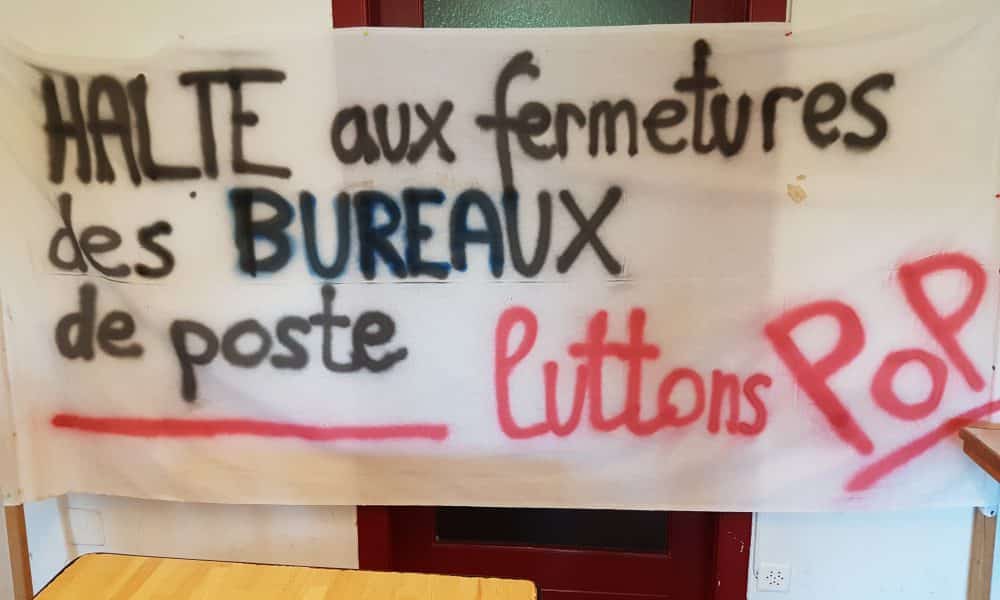 HALTE aux fermetures
des BUREAUX
de poste
luttons PoP